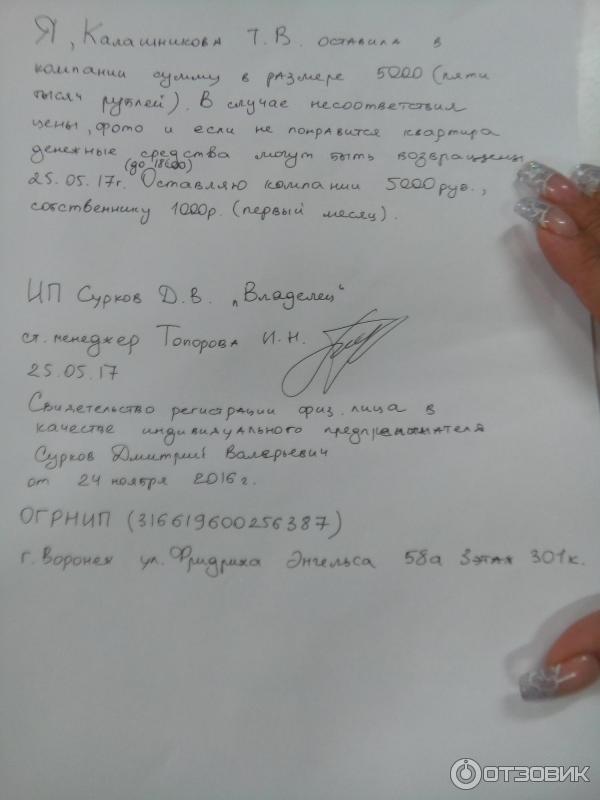 Я, Калашникова Т.В. оставила в
компании сумму в размере 5000 (пяти
тысяч рублей). В случае несоответствия
цены, фото и если не понравится квартира
денежные средства могут быть возвращены
(до 18:00)
25.05.17г. Оставляю компании 5000 руб.,
собственнику 1000р. (первый месяц).
ИП Сурков Д.В. „Владелец"
ст. менеджер Топорова И.Н.
25.05.17
Свидетельство регистрации физ. лица в
качестве индивидуального предпринимателя
Сурков Дмитрий Валерьевич
от 24 ноября 2016г.
ОГРНИП (316619600256387)
г. Воронеж ул. Фридриха Энгельса 58а 3 этаж 301 к.
ОТЗОВИК